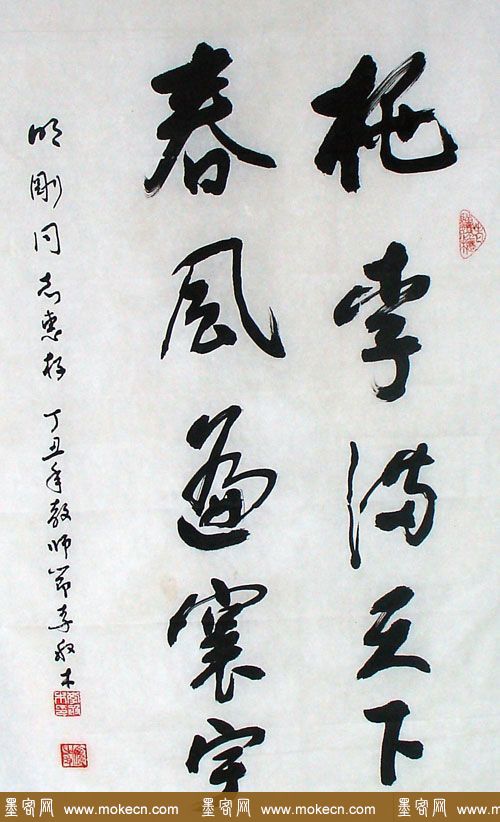 桃李满天下
春风遍寰宇
明刚同志惠存 丁丑年教师节李秋木
墨客网 www.mokecn.com 墨客网 www.mokecn.com 墨客网 www.mo